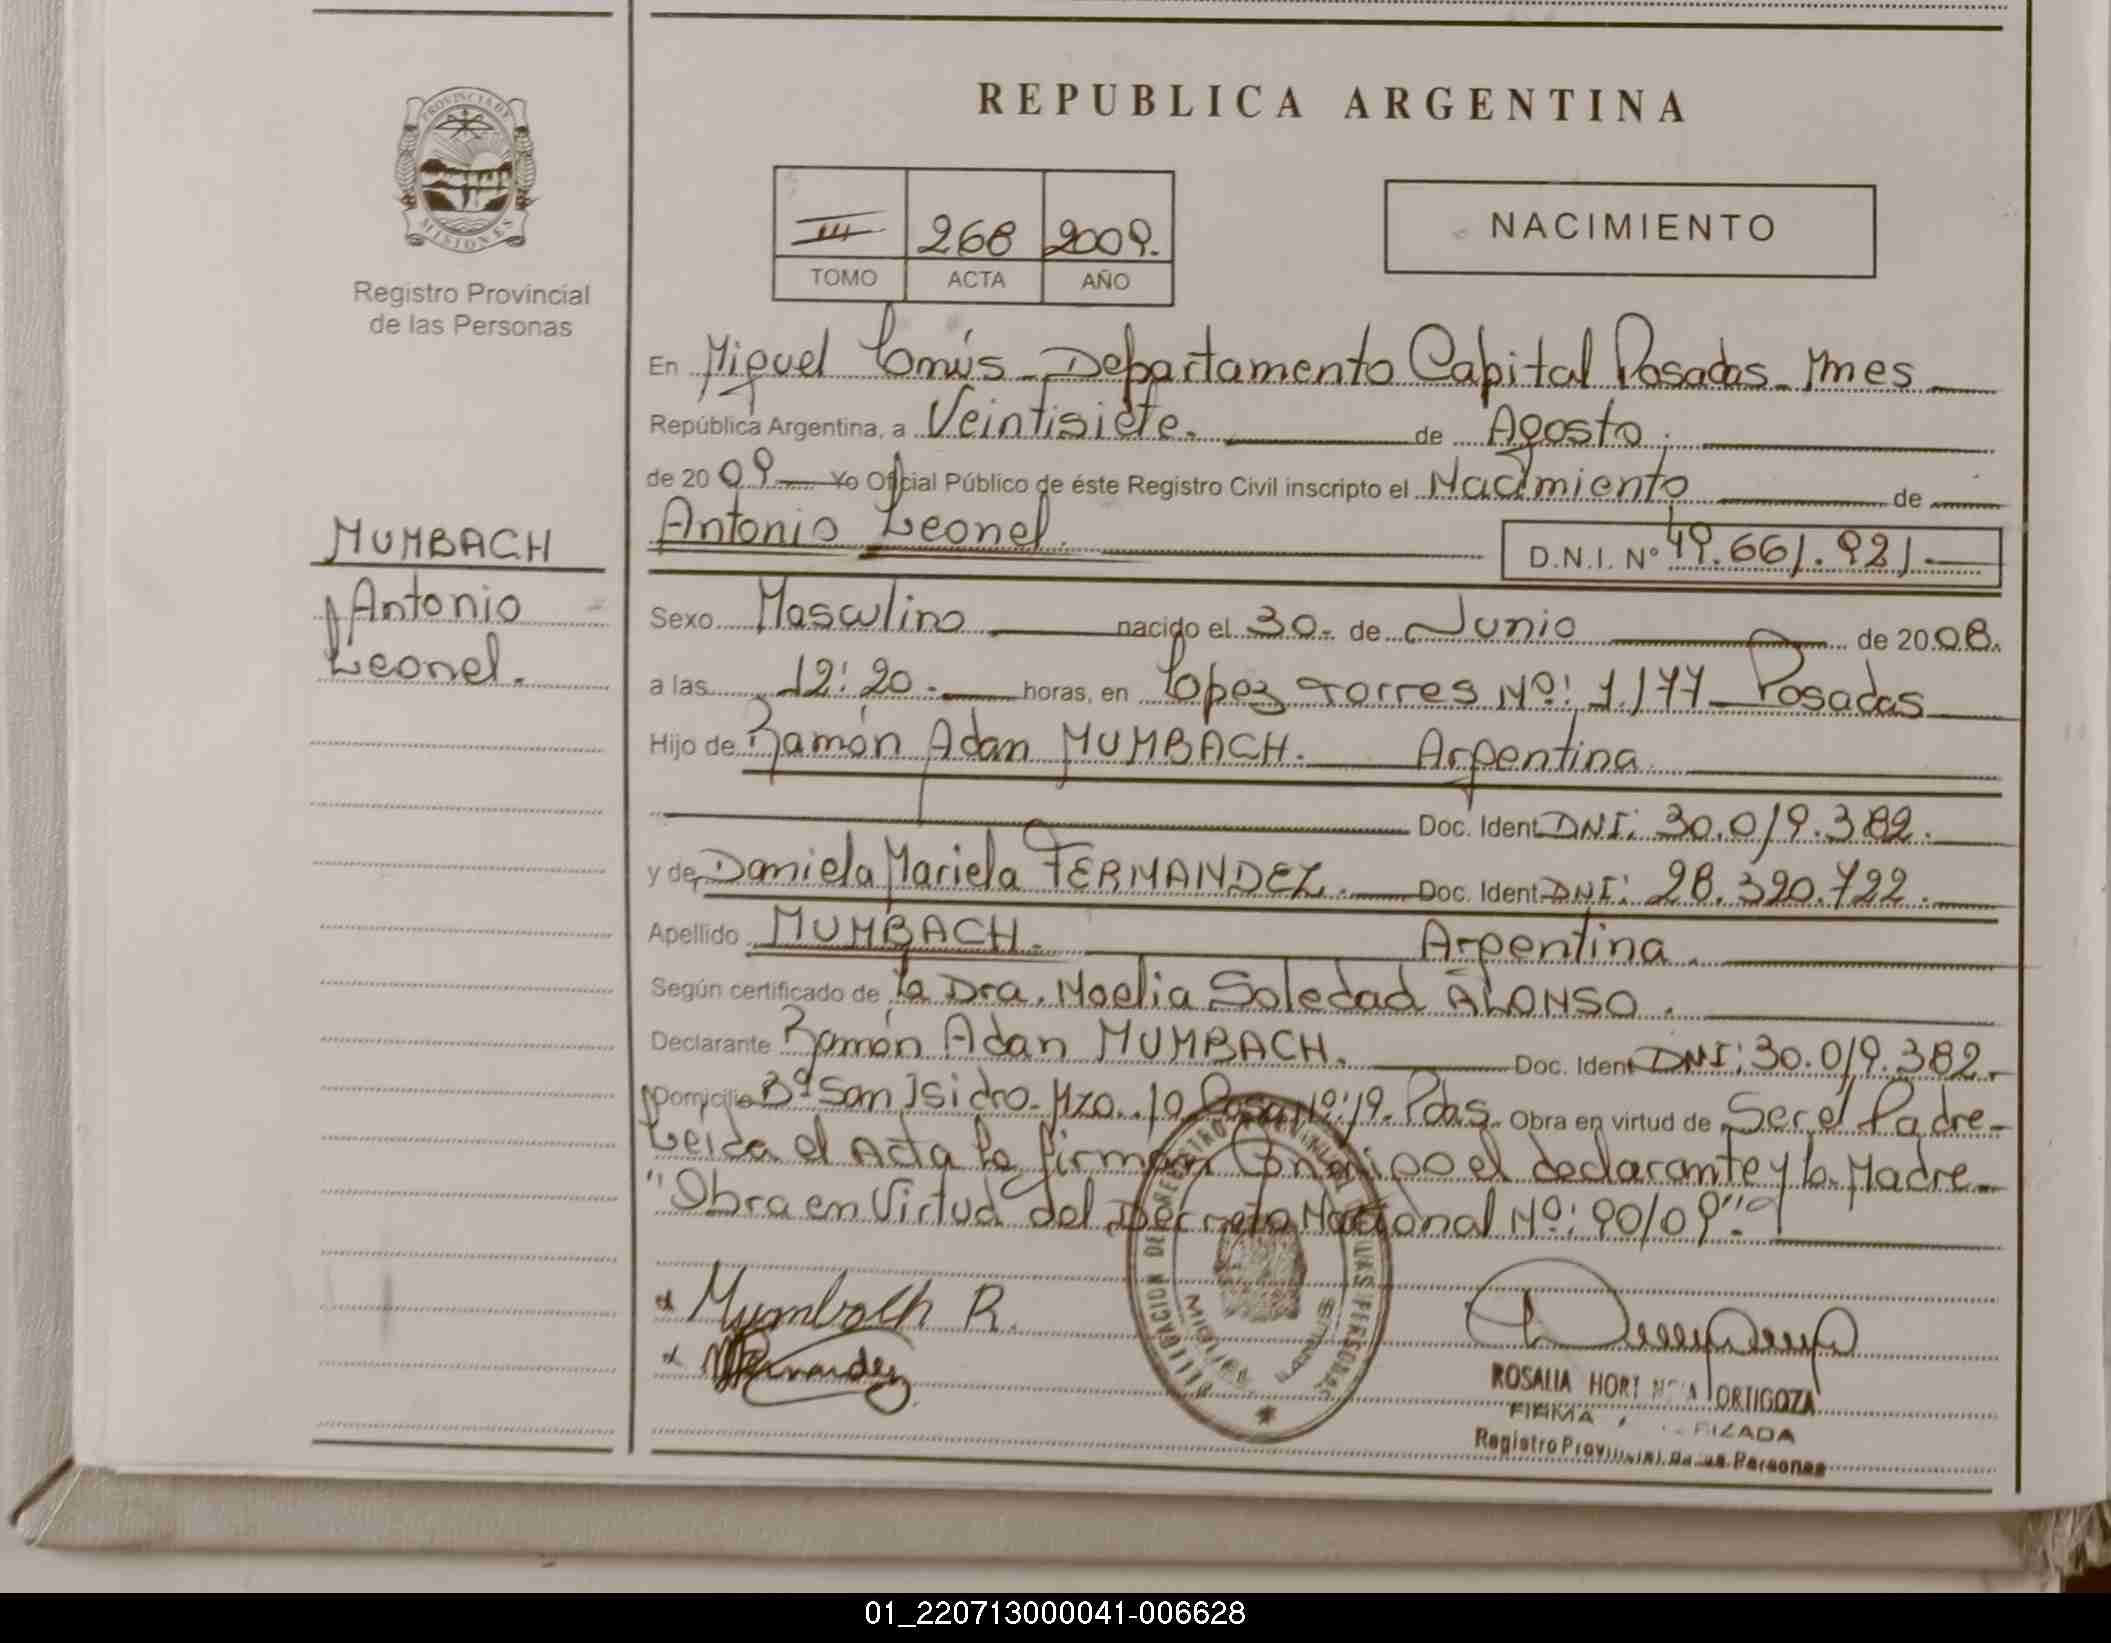 REPUBLICA ARGENTINA
PROVINCIA DE
MISIONES
Registro Provincial
de las Personas
III 268 2009.
TOMO ACTA AÑO
NACIMIENTO
En Miguel Lanús - Departamento Capital Posadas - Mnes
República Argentina, a Veintisiete. de Agosto.
de 20 09 Yo Oficial Público de éste Registro Civil inscripto el Nacimiento de
Antonio Leonel. D.N.I. Nº 49.661.921.-
MUMBACH
Antonio
Leonel.
Sexo Masculino nacido el 30- de Junio de 20 08.
a las 12:20.- horas, en Lopez Torres Nº: 1.177 - Posadas
Hijo de Ramón Adan MUMBACH. Argentina
Doc. Ident DNI: 30.019.382.
y de Daniela Mariela FERNANDEZ. Doc. Ident DNI: 28.320.722.
Apellido MUMBACH. Argentina.
Según certificado de la Dra. Noelia Soledad ALONSO.
Declarante Ramón Adan MUMBACH. Doc. Ident DNI: 30.019.382.
Domicilio Bº San Isidro - Mzo. 10 Casa Nº: 19. Pdas. Obra en virtud de Ser el Padre-
Leida el Acta la firman Conmigo el declarante y la Madre-
"Obra en Virtud del Decreto Nacional Nº: 90/09".
Mumbach R.
Fernandez
DELEGACION DE REGISTRO PROVINCIAL DE LAS PERSONAS
MIGUEL LANUS
ROSALIA ORTIGOZA
FIRMA
Registro Provincial de las Personas
01_220713000041-006628